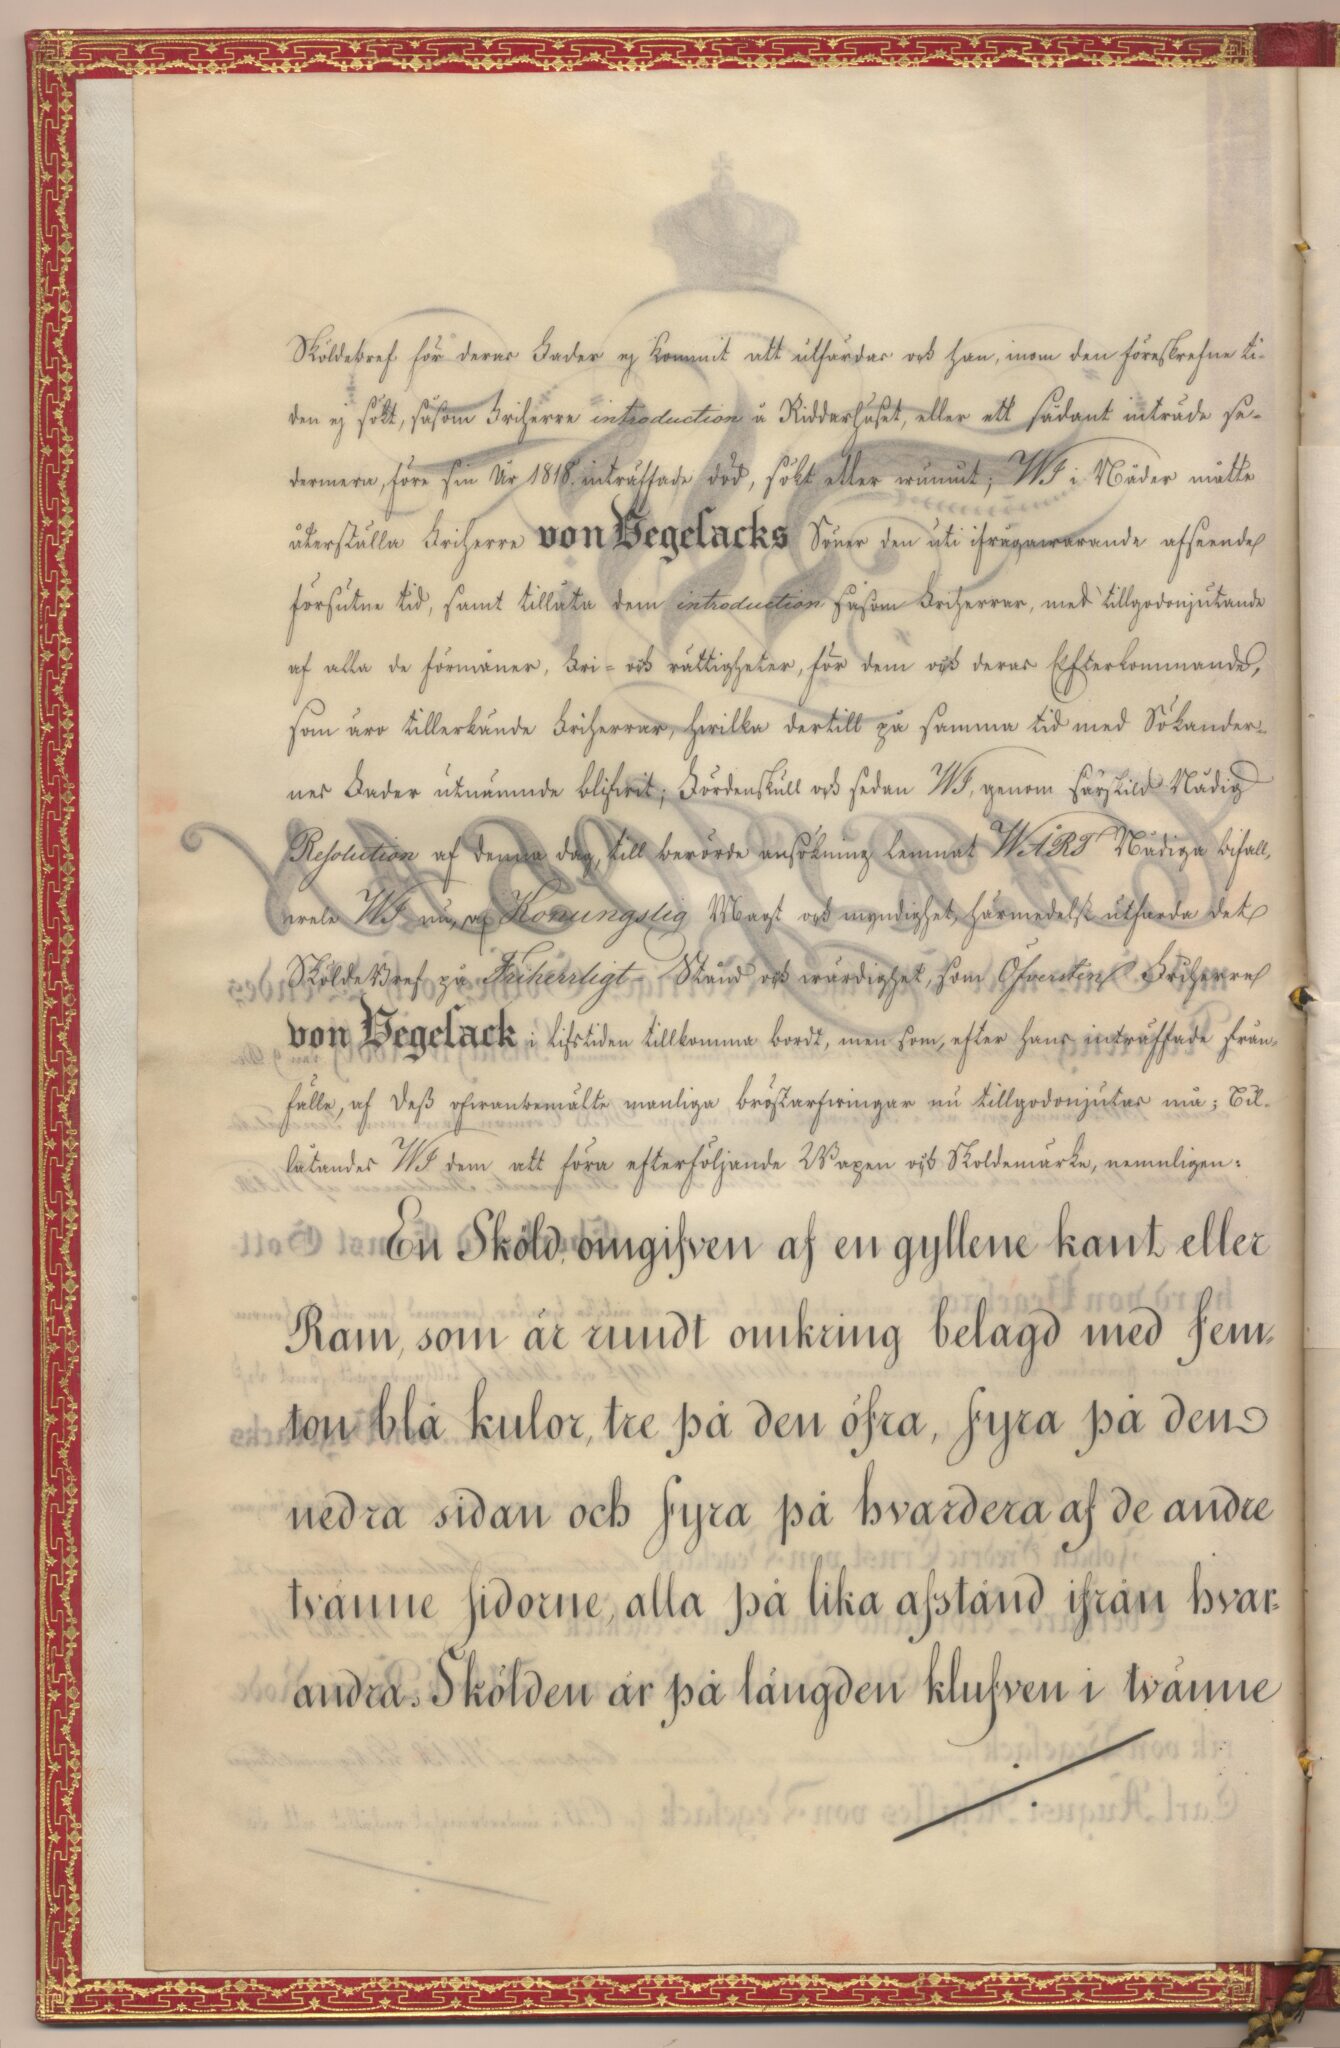 Sköldebref för deras Fader ej kommit att utfärdas och han, inom den föreskrefne ti-
den ej sökt, såsom Friherre introduction å Riddarhuset, eller ett sådant inträde se-
dermera, före sin År 1818 inträffade död, sökt eller wunnit; WI i Nåder måtte
återställa Friherre von Vegesacks Söner den uti ifrågawarande afseende
försutne tid, samt tillåta dem introduction såsom Friherrar, med tillgodonjutande
af alla de förmåner, Fri- och rättigheter, för dem och deras Efterkommande,
som äro tillerkände Friherrar, hwilka dertill på samma tid med Sökander-
nes Fader utnämnde blifwit; Fördenskull och sedan WI, genom särskild Nådig
Resolution af denna dag, till berörde ansökning lemnat WÅRT Nådiga bifall,
wele WI nu, af Konungslig Magt och myndighet, härmedelst utfärda det
Sköldebref på Friherrligt Stånd och wärdighet, som Öfversten Friherre
von Vegesack i lifstiden tillkomma bordt, men som, efter hans inträffade från-
fälle, af Deß ofwanbemälte manliga bröstarfwingar nu tillgodonjutas må; Til-
låtandes WI dem att föra efterföljande Wapen och Sköldemärke, nemnligen:
En Sköld, omgifven af en gyllene kant eller
Ram, som är rundt omkring belagd med fem-
ton blå kulor, tre på den öfra, fyra på den
nedra sidan och fyra på hvardera af de andre
tvänne sidorne, alla på lika afstånd ifrån hvar-
andra. Skölden är på längden klufven i tvänne